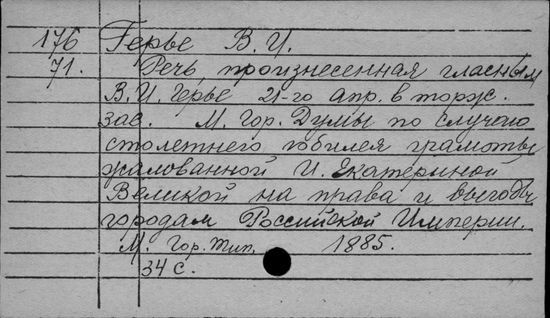 176 Герье В. И.
71. Речь, произнесенная гласным
В. И. Герье 21-го апр. в торж.
зас. М. Гор. Думы по случаю
столетнего юбилея грамоты
жалованной И. Екатериной
Великой на права и выгоды
городам Российской Империи.
М. Гор. тип. 1885.
34 с.